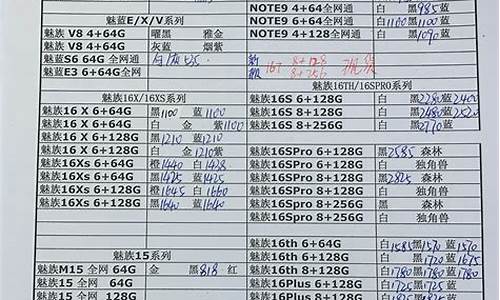 NOTE9 4+64全网通 白 黑985蓝
魅蓝E/X/V系列 NOTE9 6+64全网通 白1100黑1100蓝
魅族 V8 4+64G 曜黑 雅金 NOTE9 4+128全网通 白 黑1090蓝
魅族 V8 4+64G 灰蓝 烟紫
魅蓝S6 64G 全网通
魅蓝E3 6+64G全网通
16T 8+128
8+256 现货
魅族16X/16XS系列 魅族16TH/16SPRO系列
魅族16 X 6+64G 黑1100 蓝1100 魅族16S 6+128G 白 黑2280蓝2400
魅族16 X 6+64G 白 金 紫1100 魅族16S 8+128G 白 黑2480蓝2520
魅族16 X 6+128G 黑1210 蓝1210 魅族16S 8+256G 白 黑2770蓝
魅族16 X 6+128G 白 金 1210紫
魅族16Xs 6+64G 橙1440 白1428 魅族16SPro 6+128G 黑2585 森林
魅族16Xs 6+64G 黑1425 蓝1425 魅族16SPro 6+128G 白 独角兽
魅族16Xs 6+128G 橙1645 白1660 魅族16SPro 8+128G 黑2825 森林
魅族16Xs 6+128G 黑1640 蓝1640 魅族16SPro 8+128G 白 独角兽
魅族16SPro 8+256G 黑 森林
魅族16SPro 8+256G 白 独角兽
魅族15系列 魅族16th 6+64G 白1585黑1570蓝1570
魅族M15 全网 64G 金 黑818 红 魅族16th 6+128G 白 黑1720蓝1675
魅族15 全网 64G 魅族16th 8+128G 白1780黑1780蓝1780
魅族15 全网 128G 魅族16Plus 6+128G 白1725黑1725蓝
魅族16Plus 8+128G